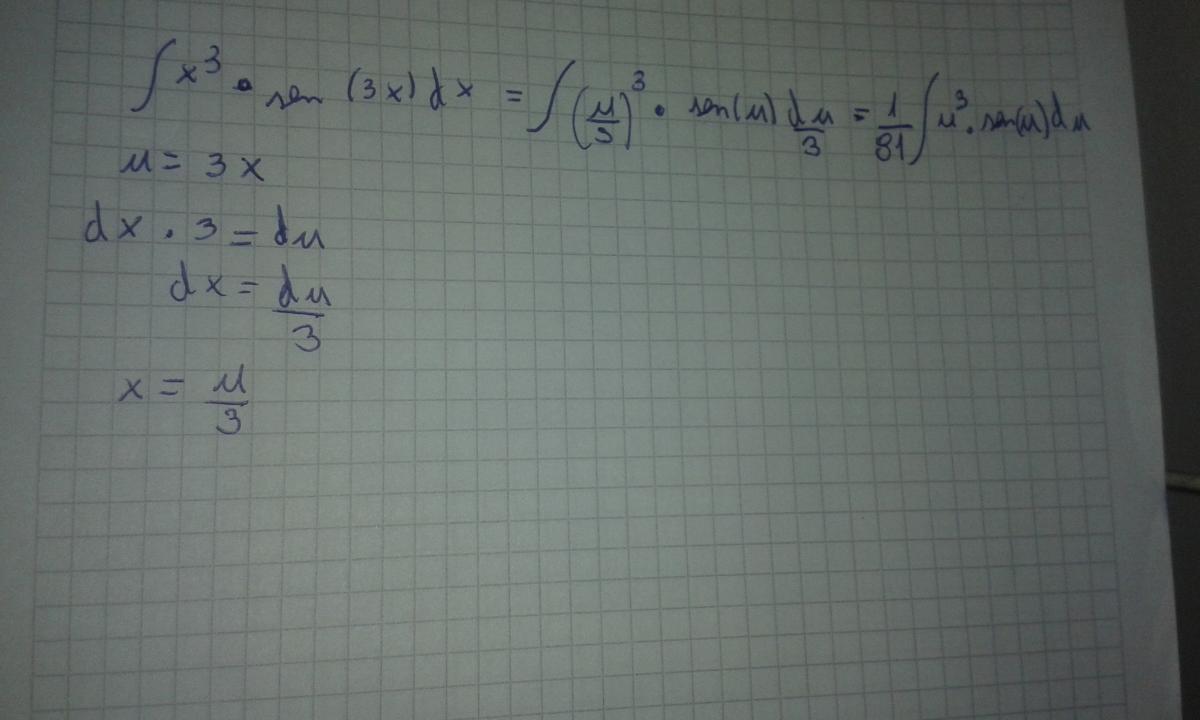 ∫ x³ · sen (3x) dx = ∫ (u/3)³ · sen(u) du/3 = 1/81 ∫ u³ · sen(u) du
u = 3x
dx · 3 = du
dx = du/3
x = u/3